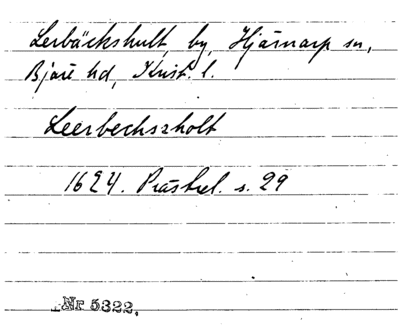 Lerbäckshult, by, Hjärnarp sn,
Bjäre hd, Krist. l.
Leerbechszholt
1624. Prästrel. s. 29
Nr 5322.